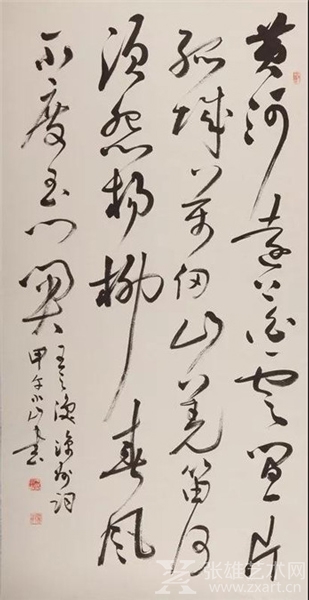 黄河遠上白雲間一片
孤城萬仞山羌笛何
須怨楊柳春風
不度玉門關
王之渙涼州詞
甲午小山書
张雄艺术网
www.zxart.cn